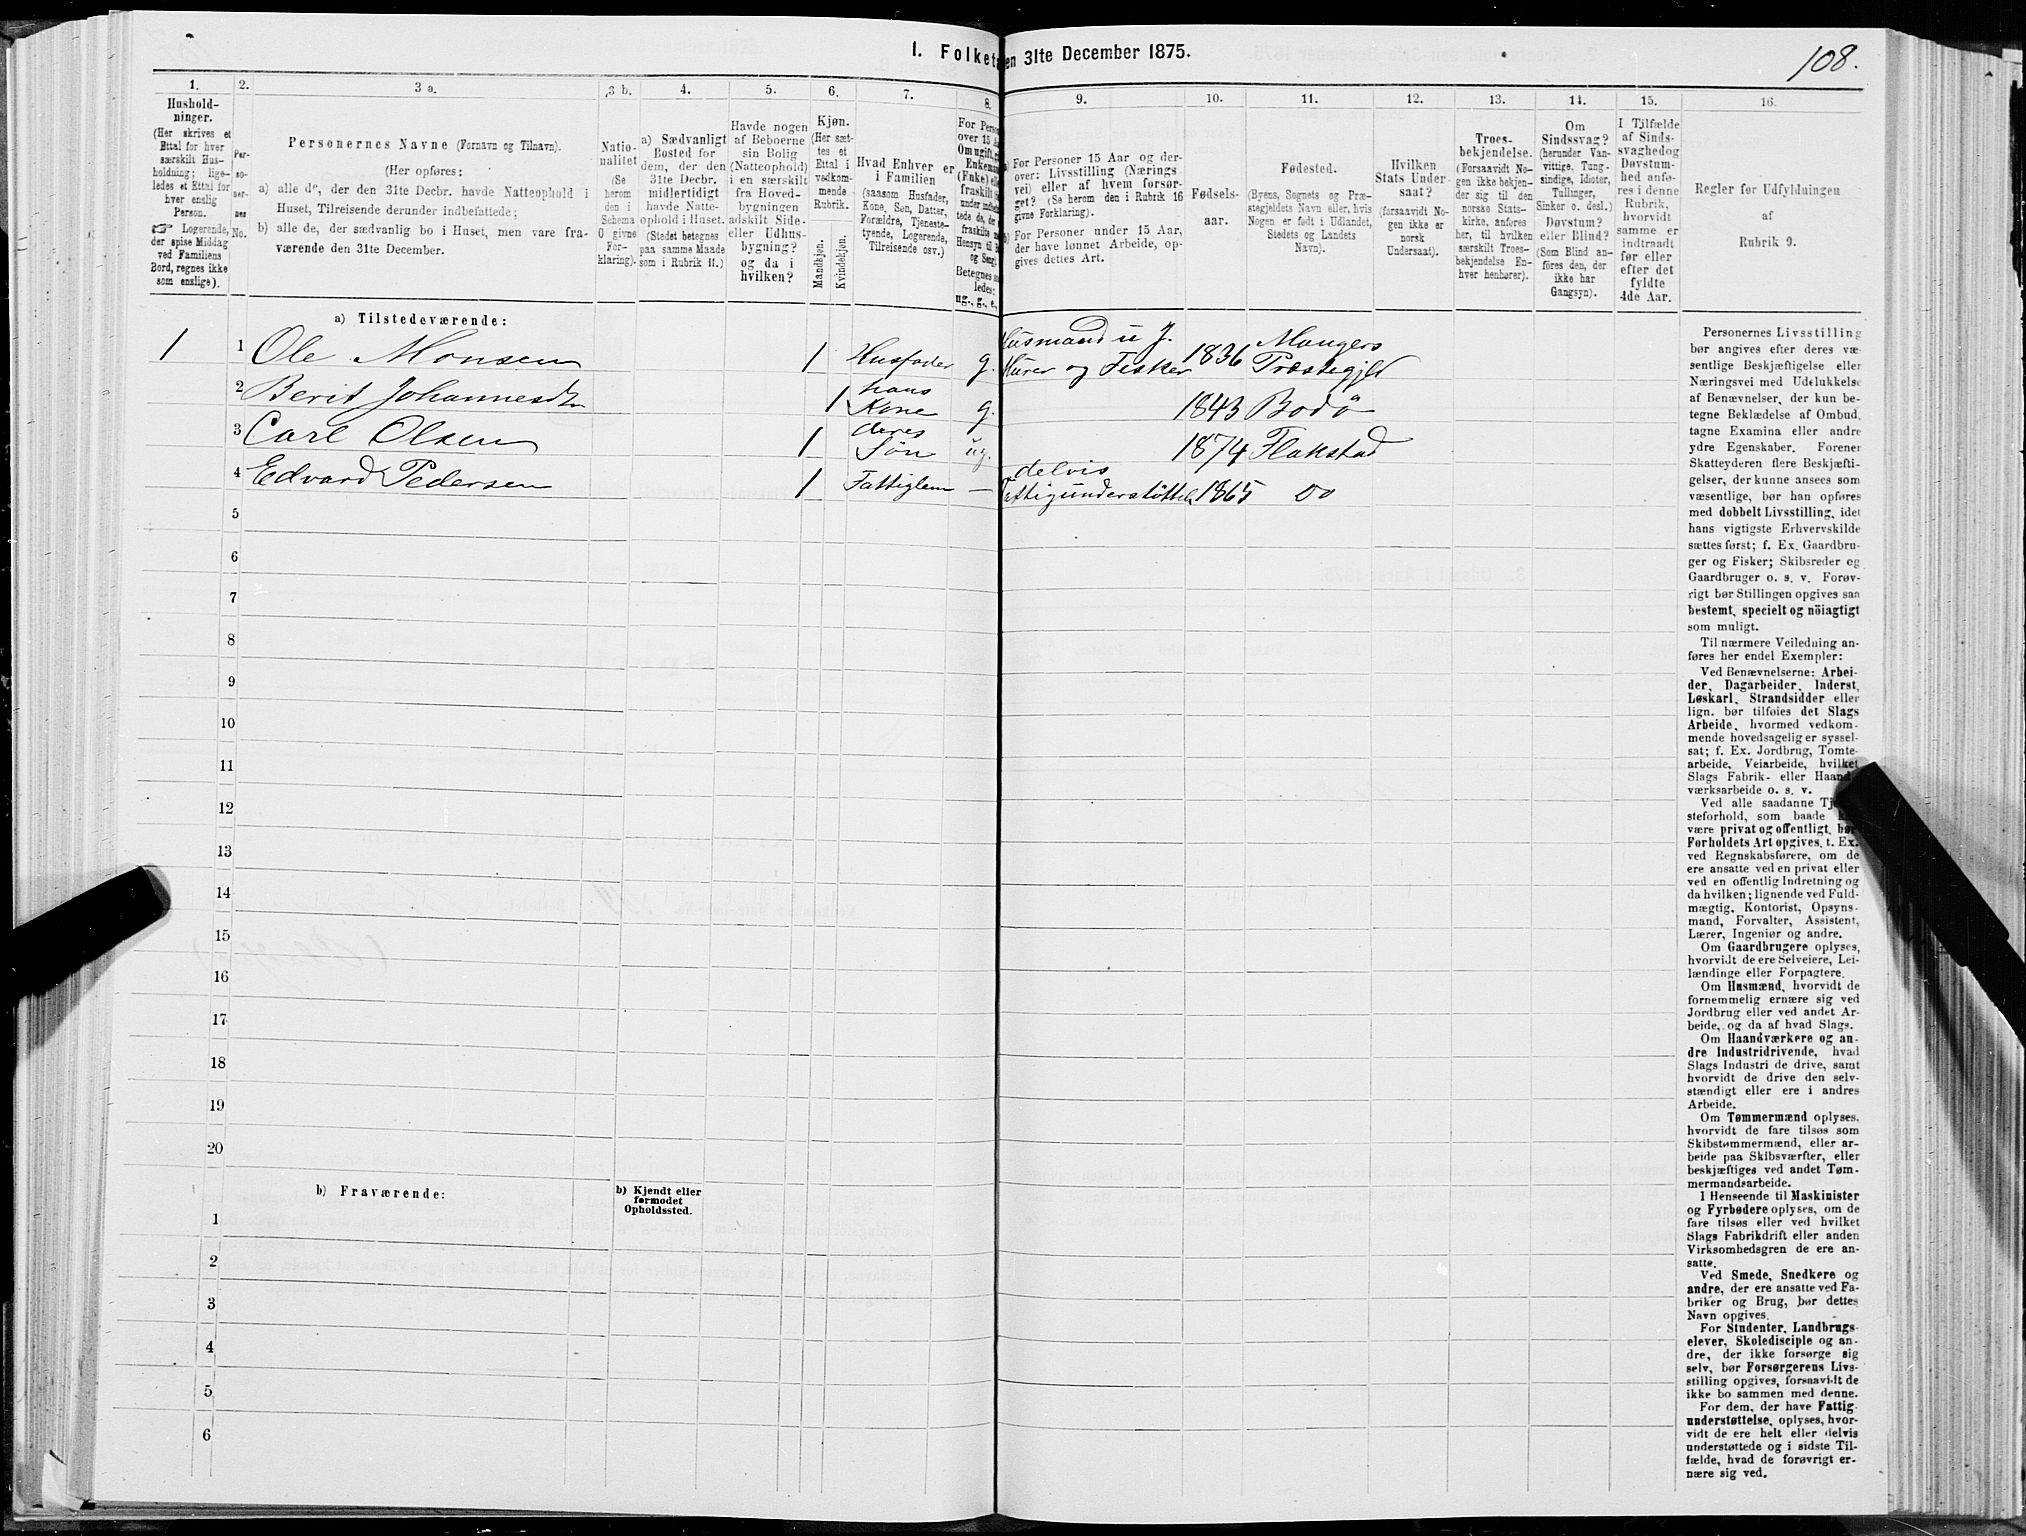 1. Folketæ
en 31te December 1875.
108.
1.
Hushold-
ninger.
(Her skrives et
Ettal for hver
særskilt Hus-
holdning; lige-
ledes et Ettal for
hver enslig
Person.
☞ Logerende,
der spise Middag
ved Familiens
Bord, regnes ikke
som enslige).
2.
Per-
so-
ner-
nes
No.
3 a.
Personernes Navne (Fornavn og Tilnavn).
(Her opføres:
a) alle de, der den 31te Decbr. havde Natteophold i
Huset, Tilreisende derunder indbefattede;
b) alle de, der sædvanlig bo i Huset, men vare fra-
værende den 31te December.
3 b.
Natio-
nalitet
(Se
herom
den i
Schema
O givne
For-
klaring).
4.
a) Sædvanligt
Bosted for
dem, der den
31te Decbr.
midlertidigt
havde Natte-
ophold i Huset.
(Stedet betegnes
paa samme Maade
som i Rubrik 11.)
5.
Havde nogen
af Beboerne
sin Bolig
(Natteophold)
i en særskilt
fra Hoved-
bygningen
adskilt Side-
eller Udhus-
bygning?
og da i
hvilken?
6.
Kjøn.
(Her sæt-
tes et
Ettal i
vedkom-
mende
Rubrik.
Mandkjøn.
Kvindekjøn.
7.
Hvad Enhver er
i Familien
(saasom Husfader,
Kone, Søn, Datter,
Forældre, Tjeneste-
tyende, Logerende,
Tilreisende osv.)
8.
For Person
over 15 A
Om ugift, g
Enkeman
(Fnke) el
fraskilt
under indbe
tede de, der
fraskilte
Hensyn til B
og Seng).
Betegnes s
ledes:
ug., g., e.,
9.
a) For Personer 15 Aar og der-
over: Livsstilling (Nærings
vei) eller af hvem forsør-
get? (Se herom den i Rubrik 16
givne Forklaring).
b) For Personer under 15 Aar,
der have lønnet Arbeide, op-
gives dettes Art.
10.
Fødsels-
aar.
11.
Fødested.
(Byens, Sognets og Præ-
stegjeldets Navn eller, hvis
Nogen er født i Udlandet,
Stedets og Landets
Navn).
12.
Hvilken
Stats Under-
saat?
(forsaavidt No-
gen ikke er
norsk
Undersaat).
13.
Troes-
bekjendelse.
(Forsaavidt No-
gen ikke bekjen-
der sig til den
norske Stats-
kirke, anføres
her, til hvilken
særskilt Troes-
bekjendelse En-
hver henhører).
14.
Om
Sindssvag?
(herunder Van-
vittige, Tung-
sindige, Idioter,
Tullinger,
Sinker o. desl.)
Døvstum?
eller Blind?
(Som Blind an-
føres den, der
ikke har
Gangsyn).
15.
I Tilfælde
af Sinds-
svaghed og
Døvstum-
hed anfø-
res i denne
Rubrik,
hvorvidt
samme er
indtraadt
før eller
efter det
fyldte
4de Aar.
16.
Regler for Udfyldningen
af
Rubrik 9.
a) Tilstedeværende:
1 1 Ole Monsen 1 Husfader g. Husmand u J.
Hurer og Fisker 1836 Mangers
Præstegjeld
2 Berit Johannesdtr 1 hans
Kone g. 1843 Bodø
3 Carl Olsen 1 deres
Søn ug. 1874 Flakstad
4 Edvard Pedersen 1 Fattiglem — delvis
Fattigunderstøttet 1865 Do
5
6
7
8
9
10
11
12
13
14
15
16
17
18
19
20
b) Fraværende:
b) Kjendt eller
formodet
Opholdssted.
1
2
3
4
5
6
Personernes Livsstilling
bør angives efter deres væ-
sentlige Beskjæftigelse eller
Næringsvei med Udelukkelse
af Benævnelser, der kun be-
tegne Beklædelse af Ombud,
tagne Examina eller andre
ydre Egenskaber. Forener
Skatteyderen flere Beskjæfti-
gelser, der kunne ansees som
væsentlige, bør han opføres
med dobbelt Livsstilling, idet
hans vigtigste Erhvervskilde
sættes først; f. Ex. Gaardbru-
ger og Fisker; Skibsreder og
Gaardbruger o. s. v. Forøv-
rigt bør Stillingen opgives saa
bestemt, specielt og nöiagtigt
som muligt.
Til nærmere Veiledning an-
føres her endel Exempler:
Ved Benævnelserne: Arbei-
der, Dagarbeider, Inderst,
Løskarl, Strandsidder eller
lign. bør tilføies det Slags
Arbeide, hvormed vedkom-
mende hovedsagelig er syssel-
sat; f. Ex. Jordbrug, Tomte-
arbeide, Veiarbeide, hvilket
Slags Fabrik- eller Haand-
værksarbeide o. s. v.
Ved alle saadanne Tje
steforhold, som baade k
være privat og offentligt, bør
Forholdets Art opgives, t. Ex.
ved Regnskabsførere, om de
ere ansatte ved en privat eller
ved en offentlig Indretning og
da hvilken; lignende ved Fuld-
mægtig, Kontorist, Opsyns-
mand, Forvalter, Assistent,
Lærer, Ingeniør og andre.
Om Gaardbrugere oplyses,
hvorvidt de ere Selveiere, Lei-
lændinge eller Forpagtere.
Om Husmænd, hvorvidt de
fornemmelig ernære sig ved
Jordbrug eller ved andet Ar-
beide, og da af hvad Slags.
Om Haandværkere og an-
dre Industridrivende, hvad
Slags Industri de drive, samt
hvorvidt de drive den selv-
stændigt eller ere i andres
Arbeide.
Om Tømmermænd oplyses,
hvorvidt de fare tilsøs som
Skibstømmermænd, eller ar-
beide paa Skibsværfter, eller
beskjæftiges ved andet Tøm-
mermandsarbeide.
I Henseende til Maskinister
og Fyrbødere oplyses, om de
fare tilsøs eller ved hvilket
Slags Fabrikdrift eller anden
Virksomhedsgren de ere an-
satte.
Ved Smede, Snedkere og
andre, der ere ansatte ved Fa-
briker og Brug, bør dettes
Navn opgives.
For Studenter, Landbrugs-
elever, Skoledisciple og an-
dre, der ikke forsørge sig
selv, bør Forsørgerens Livs-
stilling opgives, forsaavidt de
ikke bo sammen med denne.
For dem, der have Fattig-
understøttelse, oplyses, hvor-
vidt de ere helt eller delvis
understøttede og i sidste Til-
fælde, hvad de forøvrigt er-
nære sig ved.